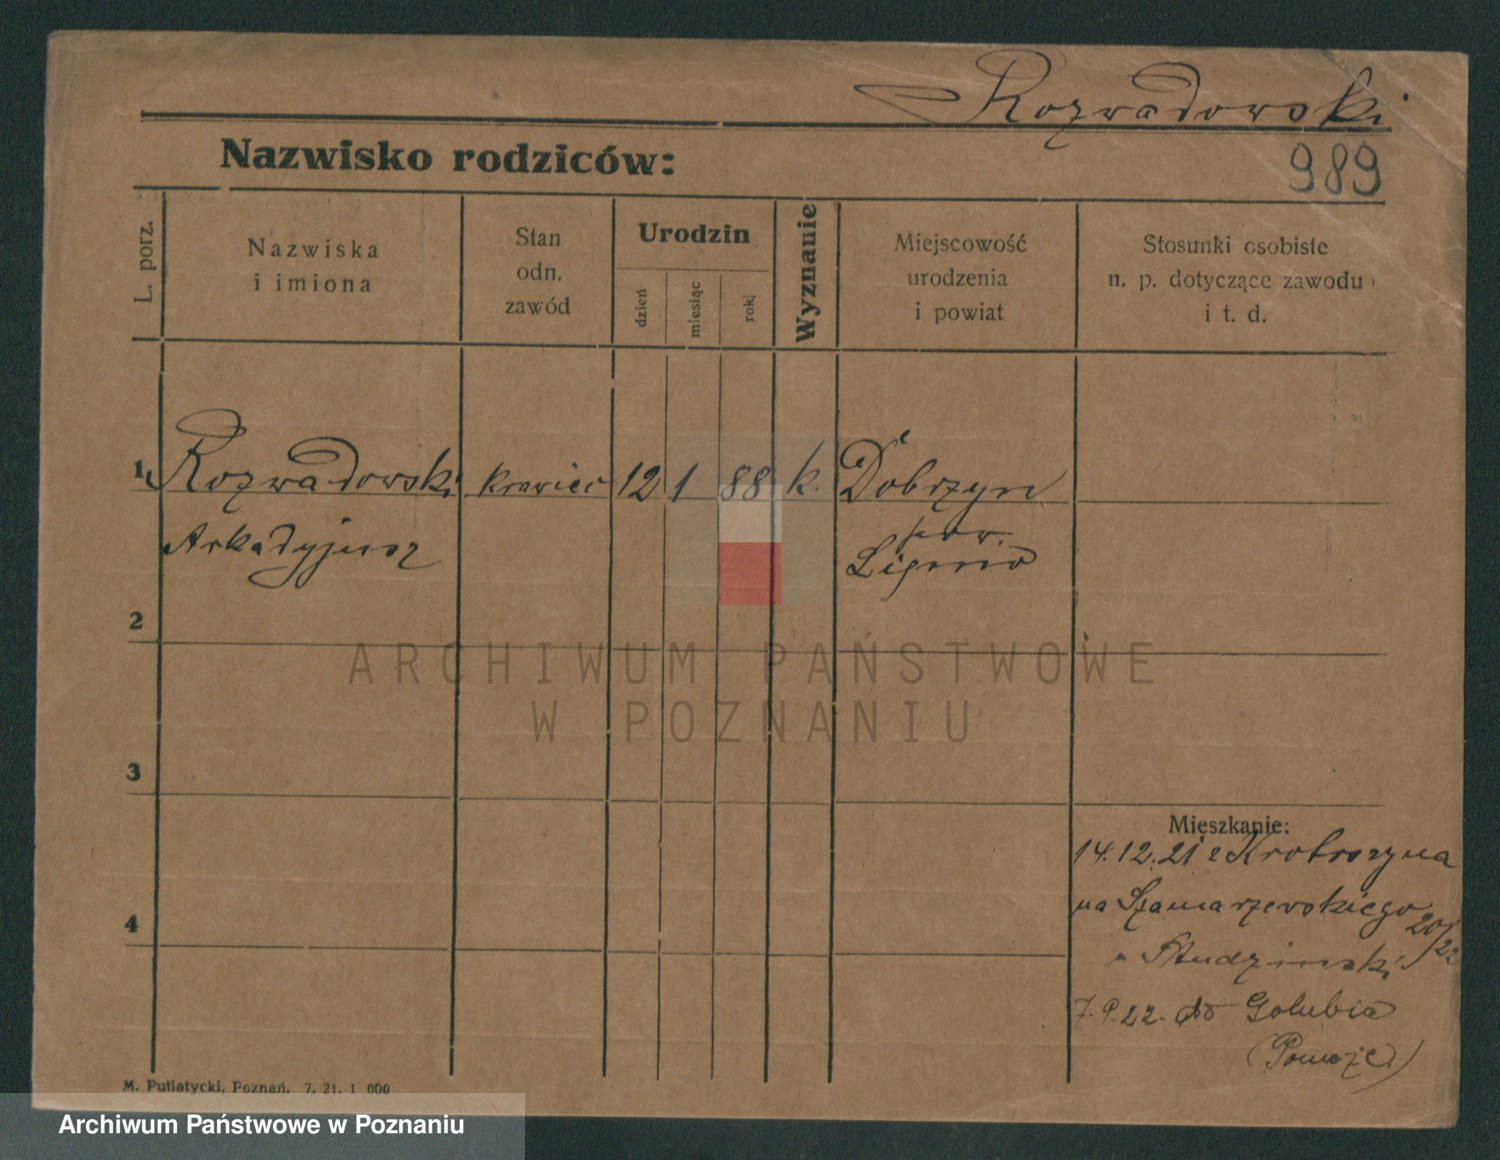 Rozwadowski
Nazwisko rodziców:
989
L. porz.
Nazwiska
i imiona
Stan
odn.
zawód
Urodzin
dzień
miesiąc
rok
Wyznanie
Miejscowość
urodzenia
i powiat
Stosunki osobiste
n. p. dotyczące zawodu
i t. d.
1 Rozwadowski krawiec 12 1 88 k. Dobrzyn
Arkadyjusz
pow.
Lipno
2
ARCHIWUM PAŃSTWOWE
W POZNANIU
3
Mieszkanie:
14.12.21 z Krotoszyna
na Szamarzewskiego 20/22
u Studzinski
7.9.22. do Golubia
(Pomorze)
4
M. Putiatycki, Poznań. 7. 21. 1 000
Archiwum Państwowe w Poznaniu